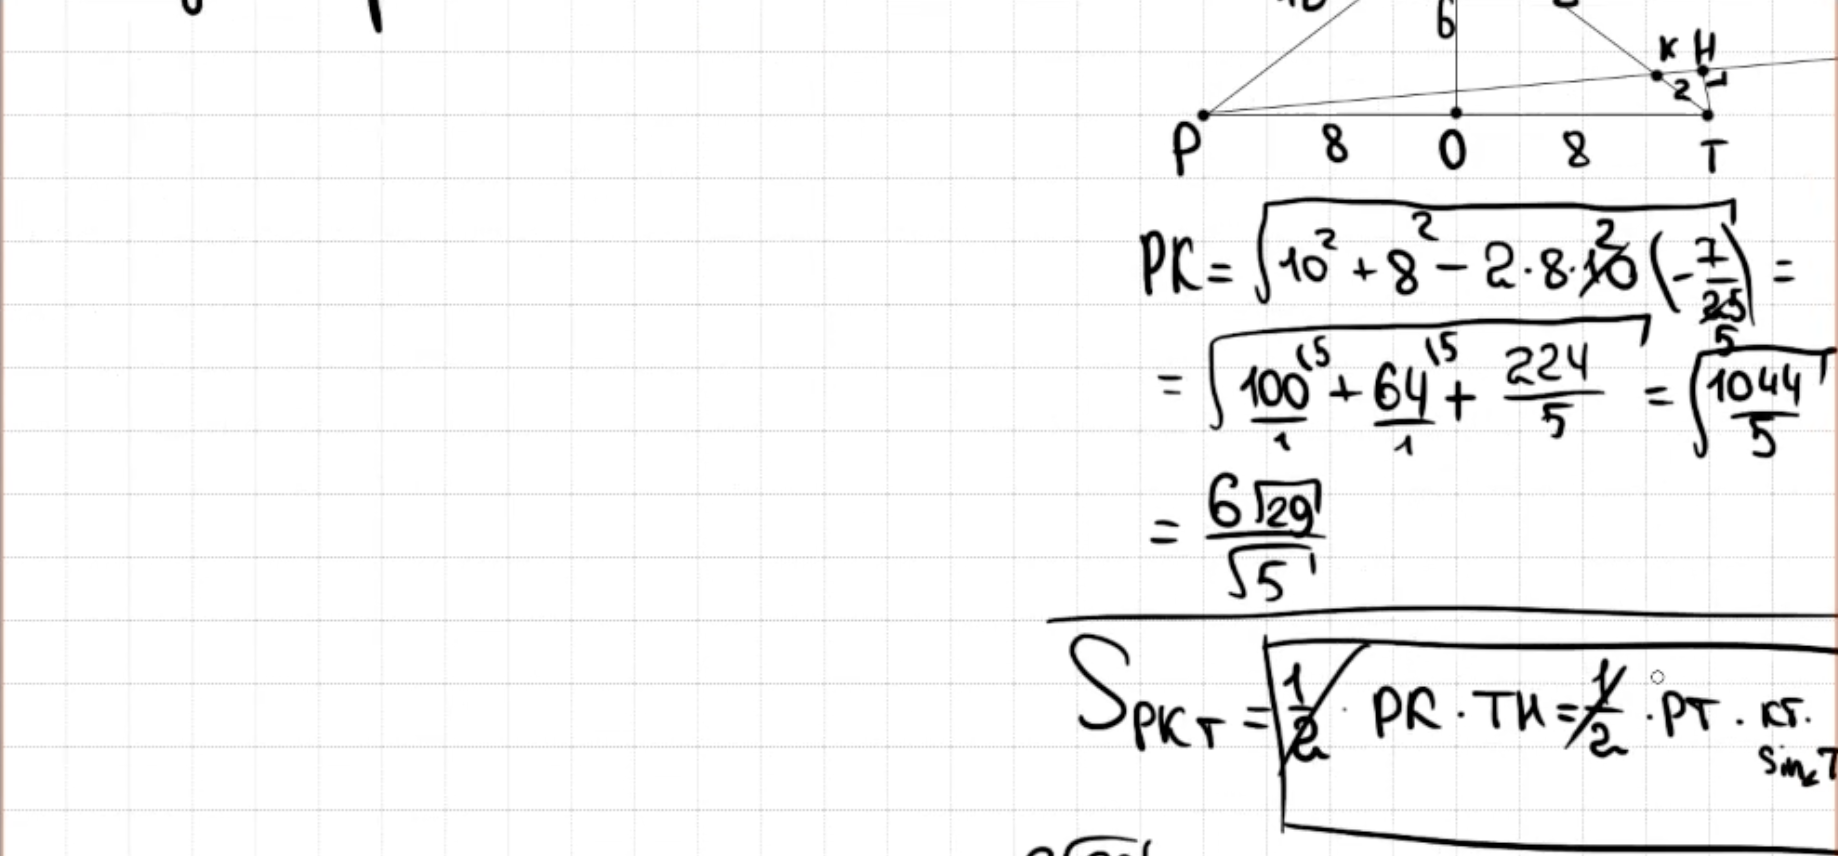 6
K H
2
P 8 O 8 T
PK = √(10² + 8² − 2·8·10 (−7/25)) =
2
5
= √(100/1 + 64/1 + 224/5) = √(1044/5)
= 6√29/√5
S PKT = 1/2 · PK · TH = 1/2 · PT · KT ·
sin∠T